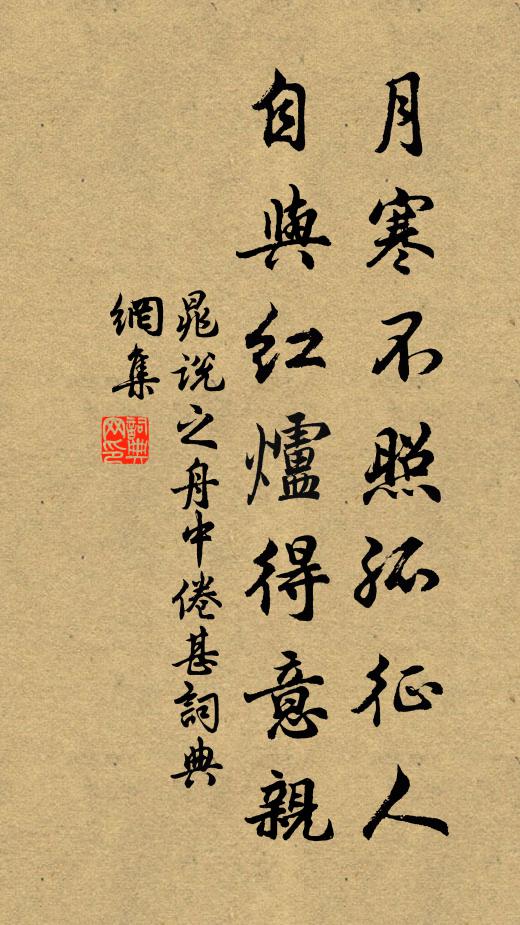 月寒不照孤征人
自與紅爐得意親
晁說之舟中倦甚詞典
網集
詞典網印